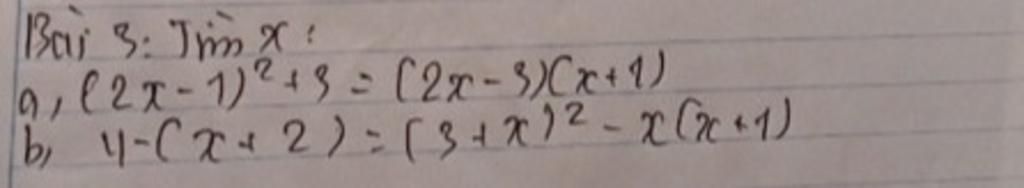 Bài 3: Tìm x:
a, (2x-1)²+3 = (2x-3)(x+1)
b, 4-(x+2) = (3+x)² - x(x+1)